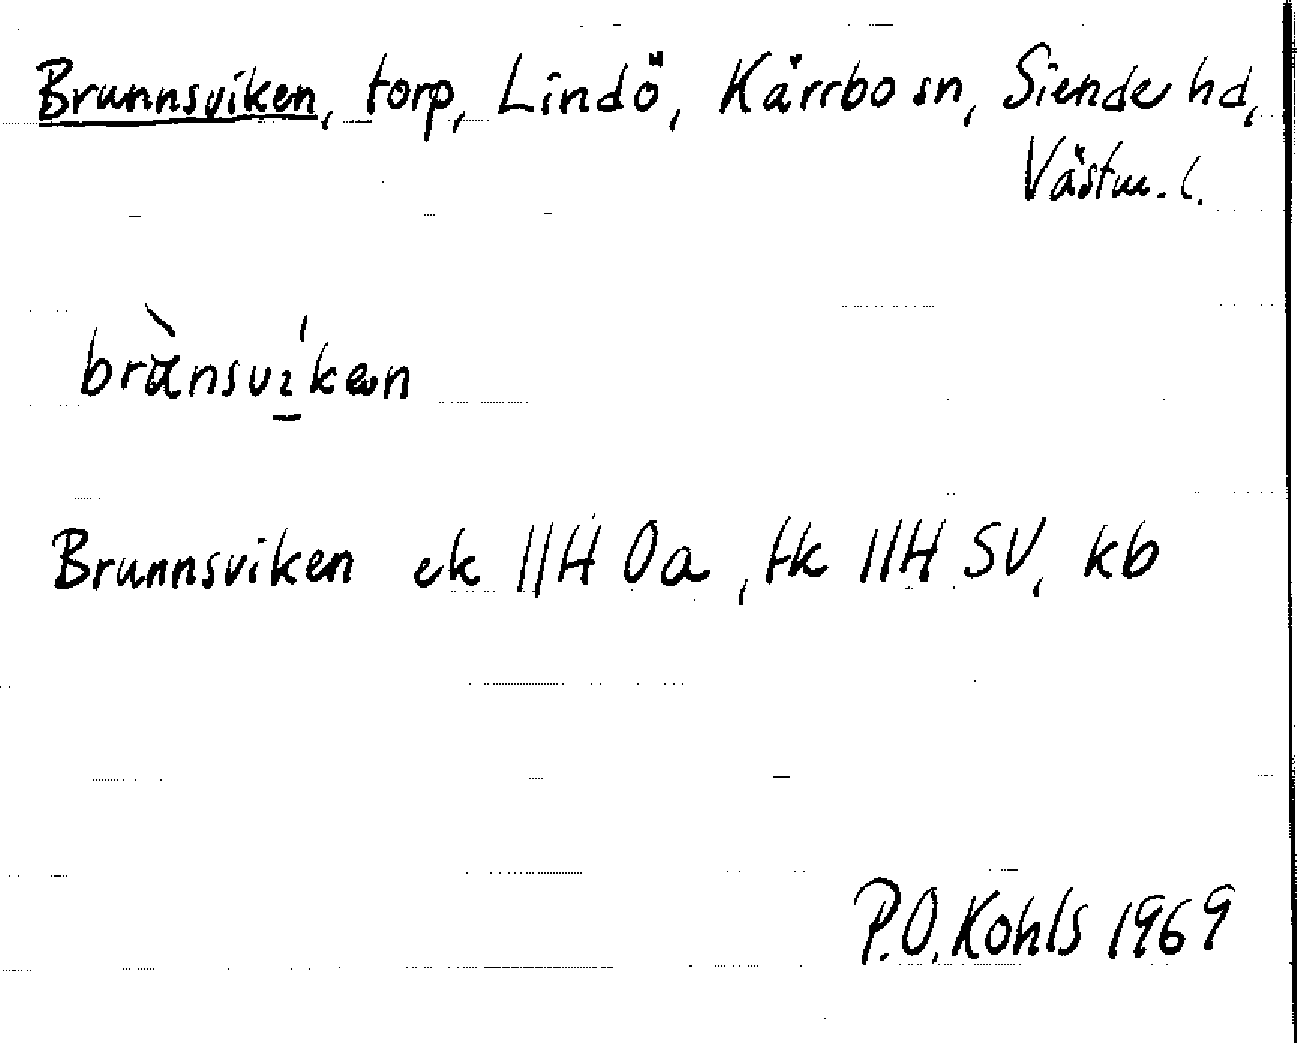 Brunnsviken, torp, Lindö, Kärrbo sn, Siende hd,
Västm. l.
brànsvi̱'kæn
Brunnsviken ek 11H 0a, tk 11H SV, kb
P.O. Kohls 1969